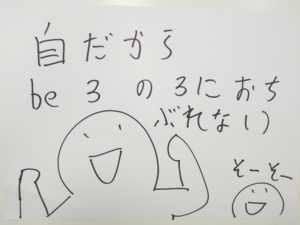 自だから
be 3 の 3に おち
ぶれない)
そーそー